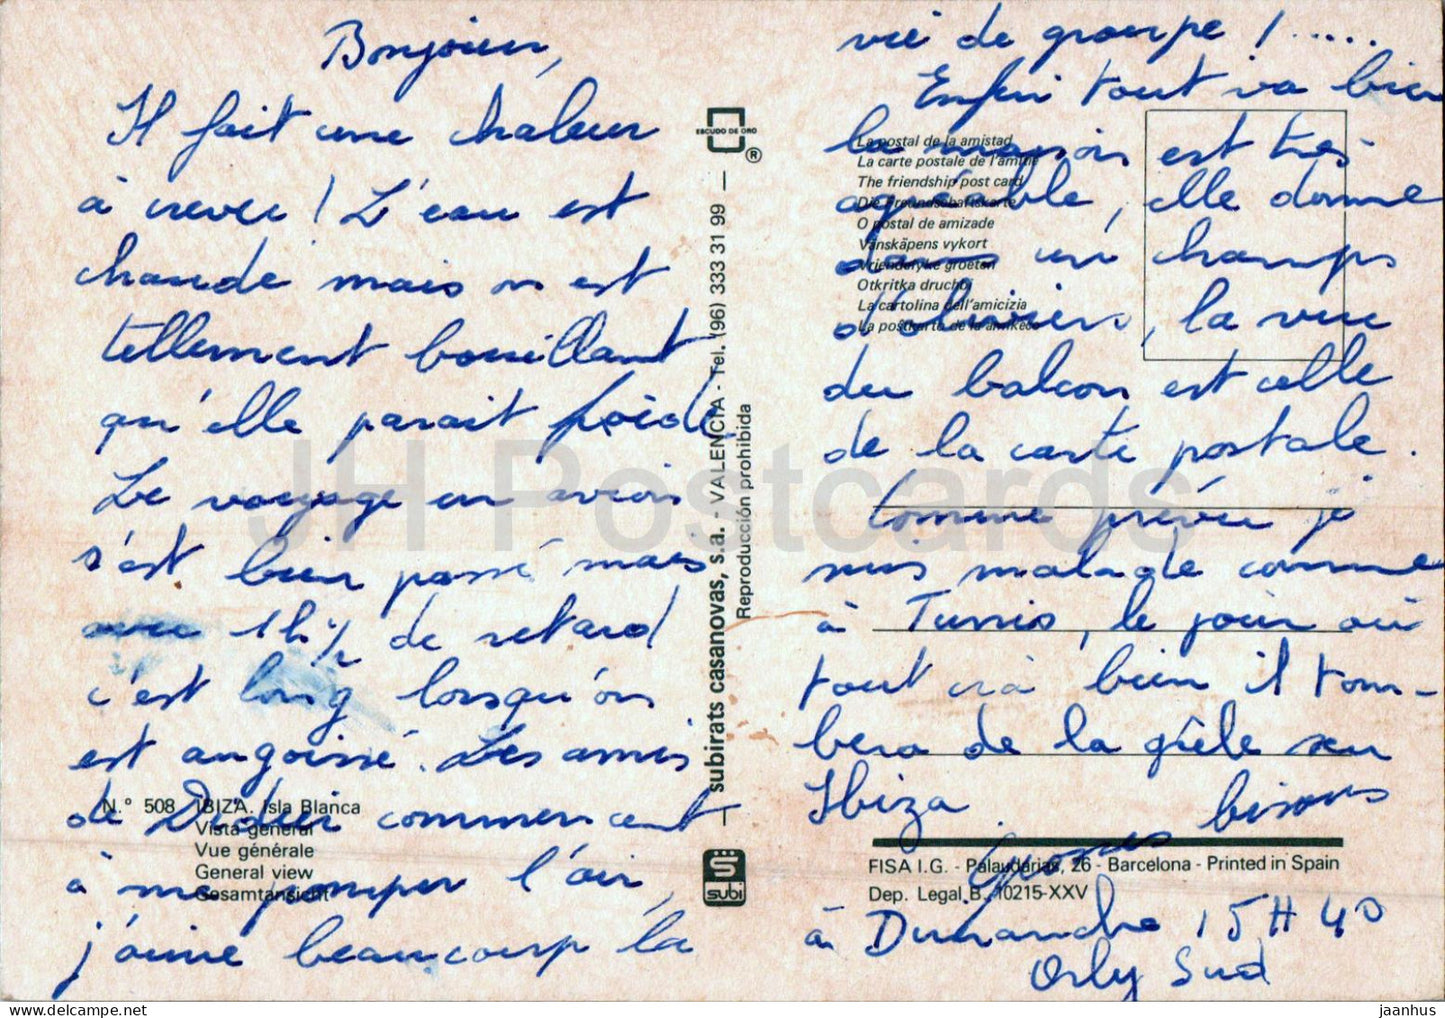 Bonjour,
Il fait une chaleur
à crever ! L'eau est
chaude mais on est
tellement bouillant
qu'elle parait froide.
Le voyage en avion
s'est bien passé mais
avec 1h 1/2 de retard
c'est long lorsqu'on
est angoissé. Les amis
de Didier commencent
à me pomper l'air,
j'aime beaucoup la
vie de groupe ! .....
Enfin tout va bien
la maison est très
agréable, elle donne
un champs
d'oliviers, la vue
du balcon est celle
de la carte postale.
Comme prévu je
suis malade comme
à Tunis, le jour où
tout ira bien il tom-
bera de la grêle sur
Ibiza.
Grosses bisous
à Dimanche 15H40
Orly Sud
ESCUDO DE ORO
®
La postal de la amistad
La carte postale de l'amitié
The friendship post card
Die Freundschaftskarte
O postal de amizade
Vänskäpens vykort
Vriendelyke groeten
Otkritka druchbi
La cartolina dell'amicizia
La poŝtkarto de la amikeco
subirats casanovas, s.a. - VALENCIA - Tel. (96) 333 31 99 —
Reproducción prohibida
subi
N.° 508 IBIZA. Isla Blanca
Vista general
Vue générale
General view
Gesamtansicht
FISA I.G. - Palaudarias, 26 - Barcelona - Printed in Spain
Dep. Legal B. 10215-XXV
JH Postcards
jaanhus